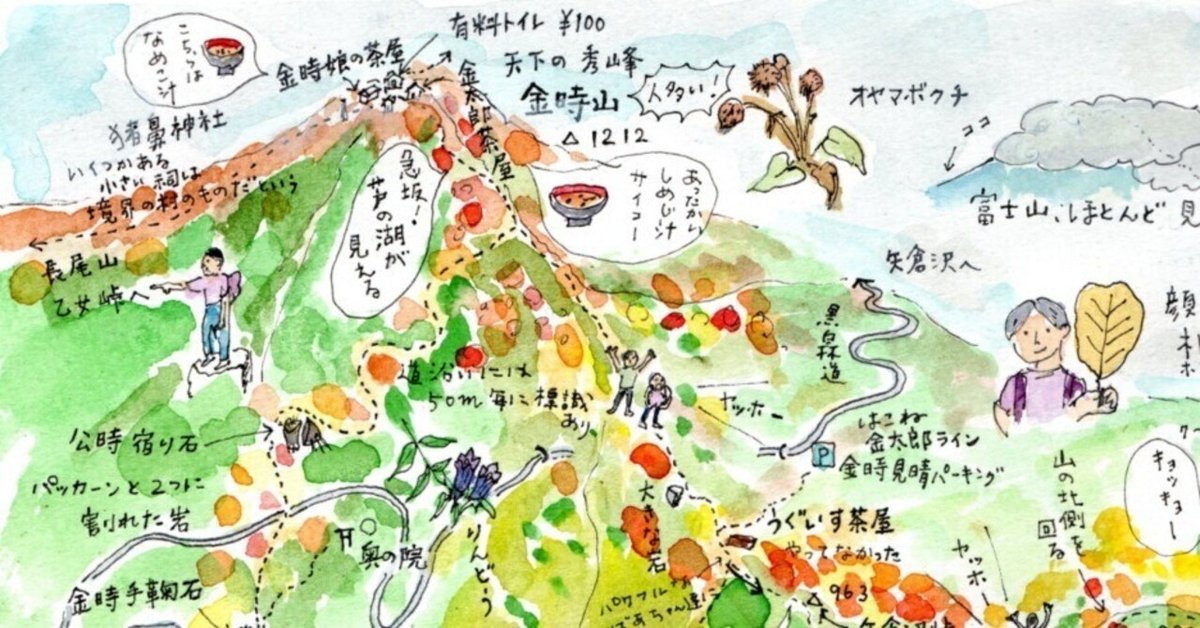 こちらは
なめこ汁
金時娘の茶屋
有料トイレ ¥100
天下の秀峰
金時山
△1212
人多い!
金太郎茶屋
オヤマボクチ
ココ
富士山、ほとんど見
猪鼻神社
いくつかある
小さい祠は
境界の村のものだという
急坂!
芦の湖が
見える
あったかい
しめじ汁
サイコー
長尾山
乙女峠へ
矢倉沢へ
黒森道
道沿いには
50m毎に標識
あり
ヤッホー
はこね
金太郎ライン
金時見晴パーキング
P
公時宿り石
パッカーンと2つに
割れた岩
奥の院
りんどう
大きな石
うぐいす茶屋
やってなかった
パワフル
ばあちゃん達
△963
山の北側を
回る
ヤッホー
キョッキョー
金時手鞠石